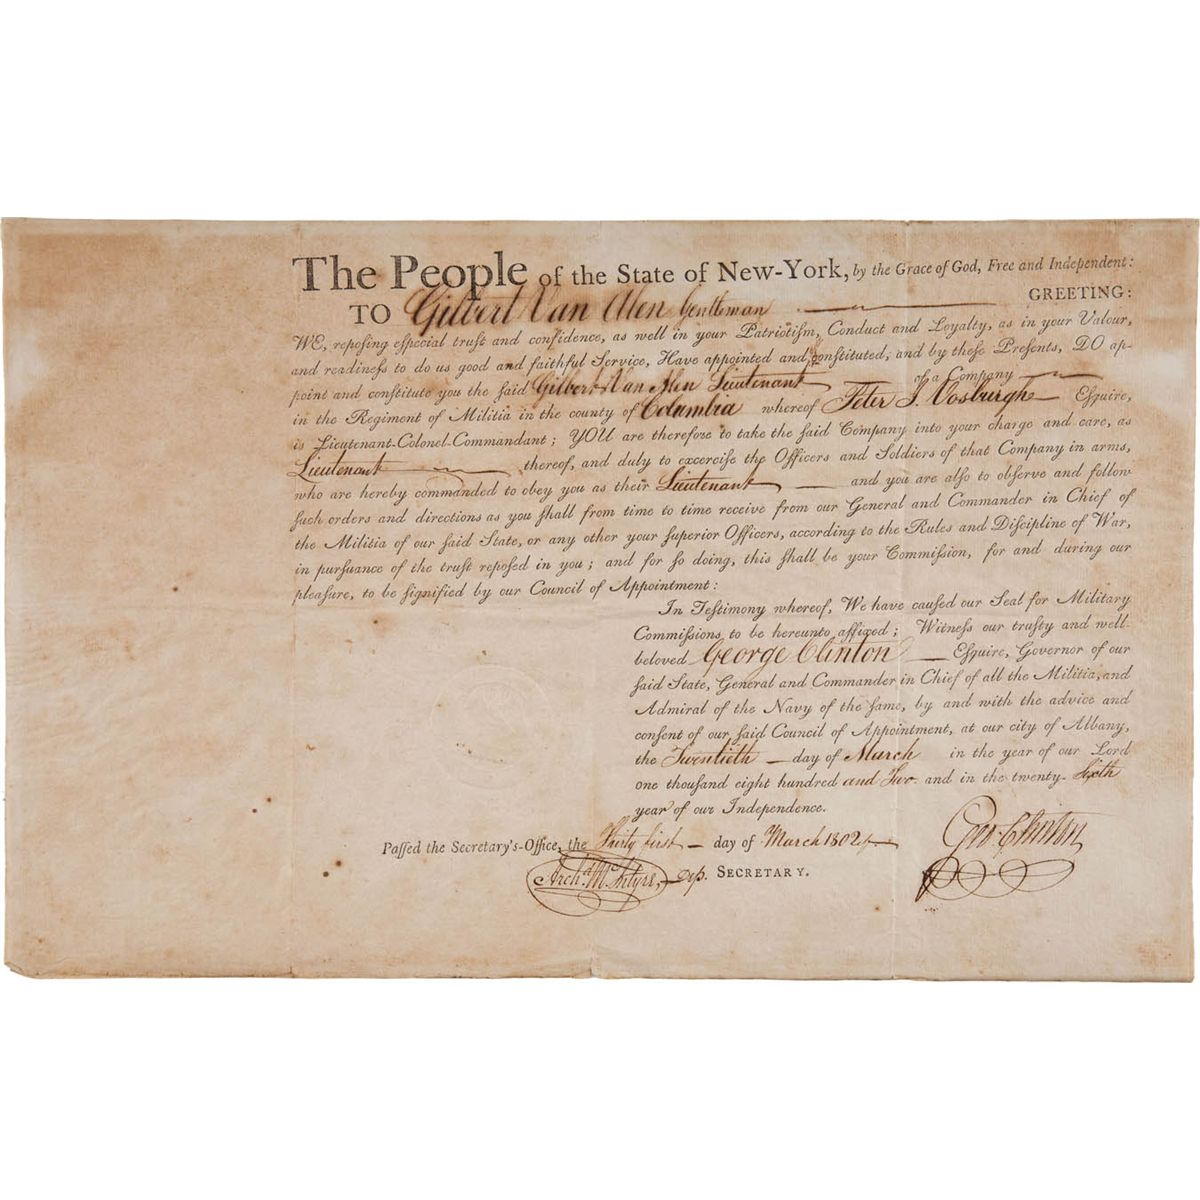 The People of the State of New-York, by the Grace of God, Free and Independent:
TO Gilbert Van Alen Gentleman GREETING:
WE, repoſing eſpecial truſt and confidence, as well in your Patriotiſm, Conduct and Loyalty, as in your Valour,
and readineſs to do us good and faithful Service, Have appointed and conſtituted, and by theſe Preſents, DO ap-
point and conſtitute you the ſaid Gilbert Van Alen Lieutenant of a Company
in the Regiment of Militia in the county of Columbia whereof Peter I. Vosburgh Eſquire,
is Lieutenant-Colonel-Commandant; YOU are therefore to take the ſaid Company into your charge and care, as
Lieutenant thereof, and duly to excerciſe the Officers and Soldiers of that Company in arms,
who are hereby commanded to obey you as their Lieutenant and you are alſo to obſerve and follow
ſuch orders and directions as you ſhall from time to time receive from our General and Commander in Chief of
the Militia of our ſaid State, or any other your ſuperior Officers, according to the Rules and Diſcipline of War,
in purſuance of the truſt repoſed in you; and for ſo doing, this ſhall be your Commiſſion, for and during our
pleaſure, to be ſignified by our Council of Appointment:
In Teſtimony whereof, We have cauſed our Seal for Military
Commiſſions to be hereunto affixed; Witneſs our truſty and well-
beloved George Clinton Eſquire, Governor of our
ſaid State, General and Commander in Chief of all the Militia, and
Admiral of the Navy of the ſame, by and with the advice and
conſent of our ſaid Council of Appointment, at our city of Albany,
the Twentieth day of March in the year of our Lord
one thouſand eight hundred and Two and in the twenty- Sixth
year of our Independence.
Paſſed the Secretary's-Office, the Thirty first day of March 1802 Geo. Clinton
Archd. McIntyre, Dep. SECRETARY.